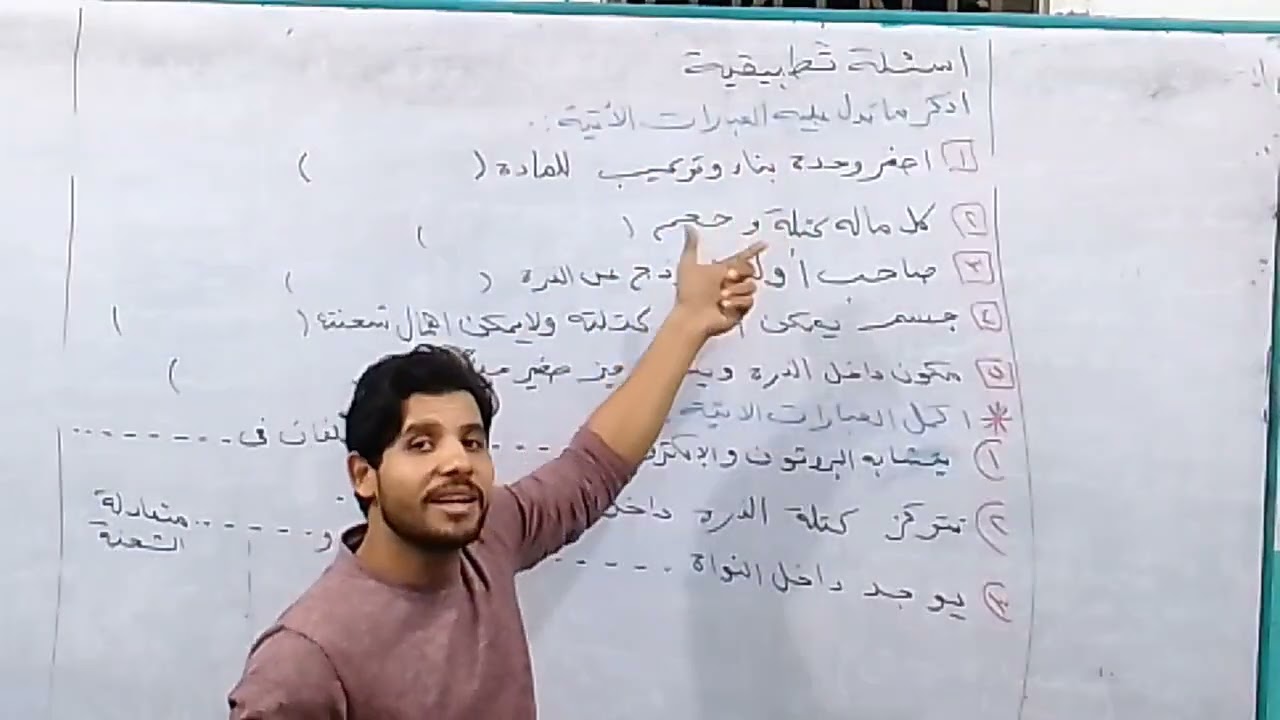 اسئلة تطبيقية
اذكر ما تدل عليه العبارات الأتية :.
١ اصغر وحدة بناء وتركيب للمادة ( )
٢ كل ماله كتلة و حجم ( )
٣ صاحب أول ذج عن الذرة ( )
٤ جسم يمكن كتلته ولا يمكن اهمال شحنته ( )
٥ مكون داخل الذرة صغير ( )
* اكمل العبارات الاتية
١ يتشابه البروتون و الإلكترو - - - لفان فى - - - - - - - -
٢ تتركز كتلة الذرة داخل
٣ يوجد داخل النواة - - - - - - و - - - - - - متعادلة الشحنة